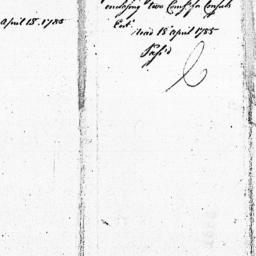 April 18. 1785
enclosing two Comms for Consuls
Read 18 April 1785
Pass'd